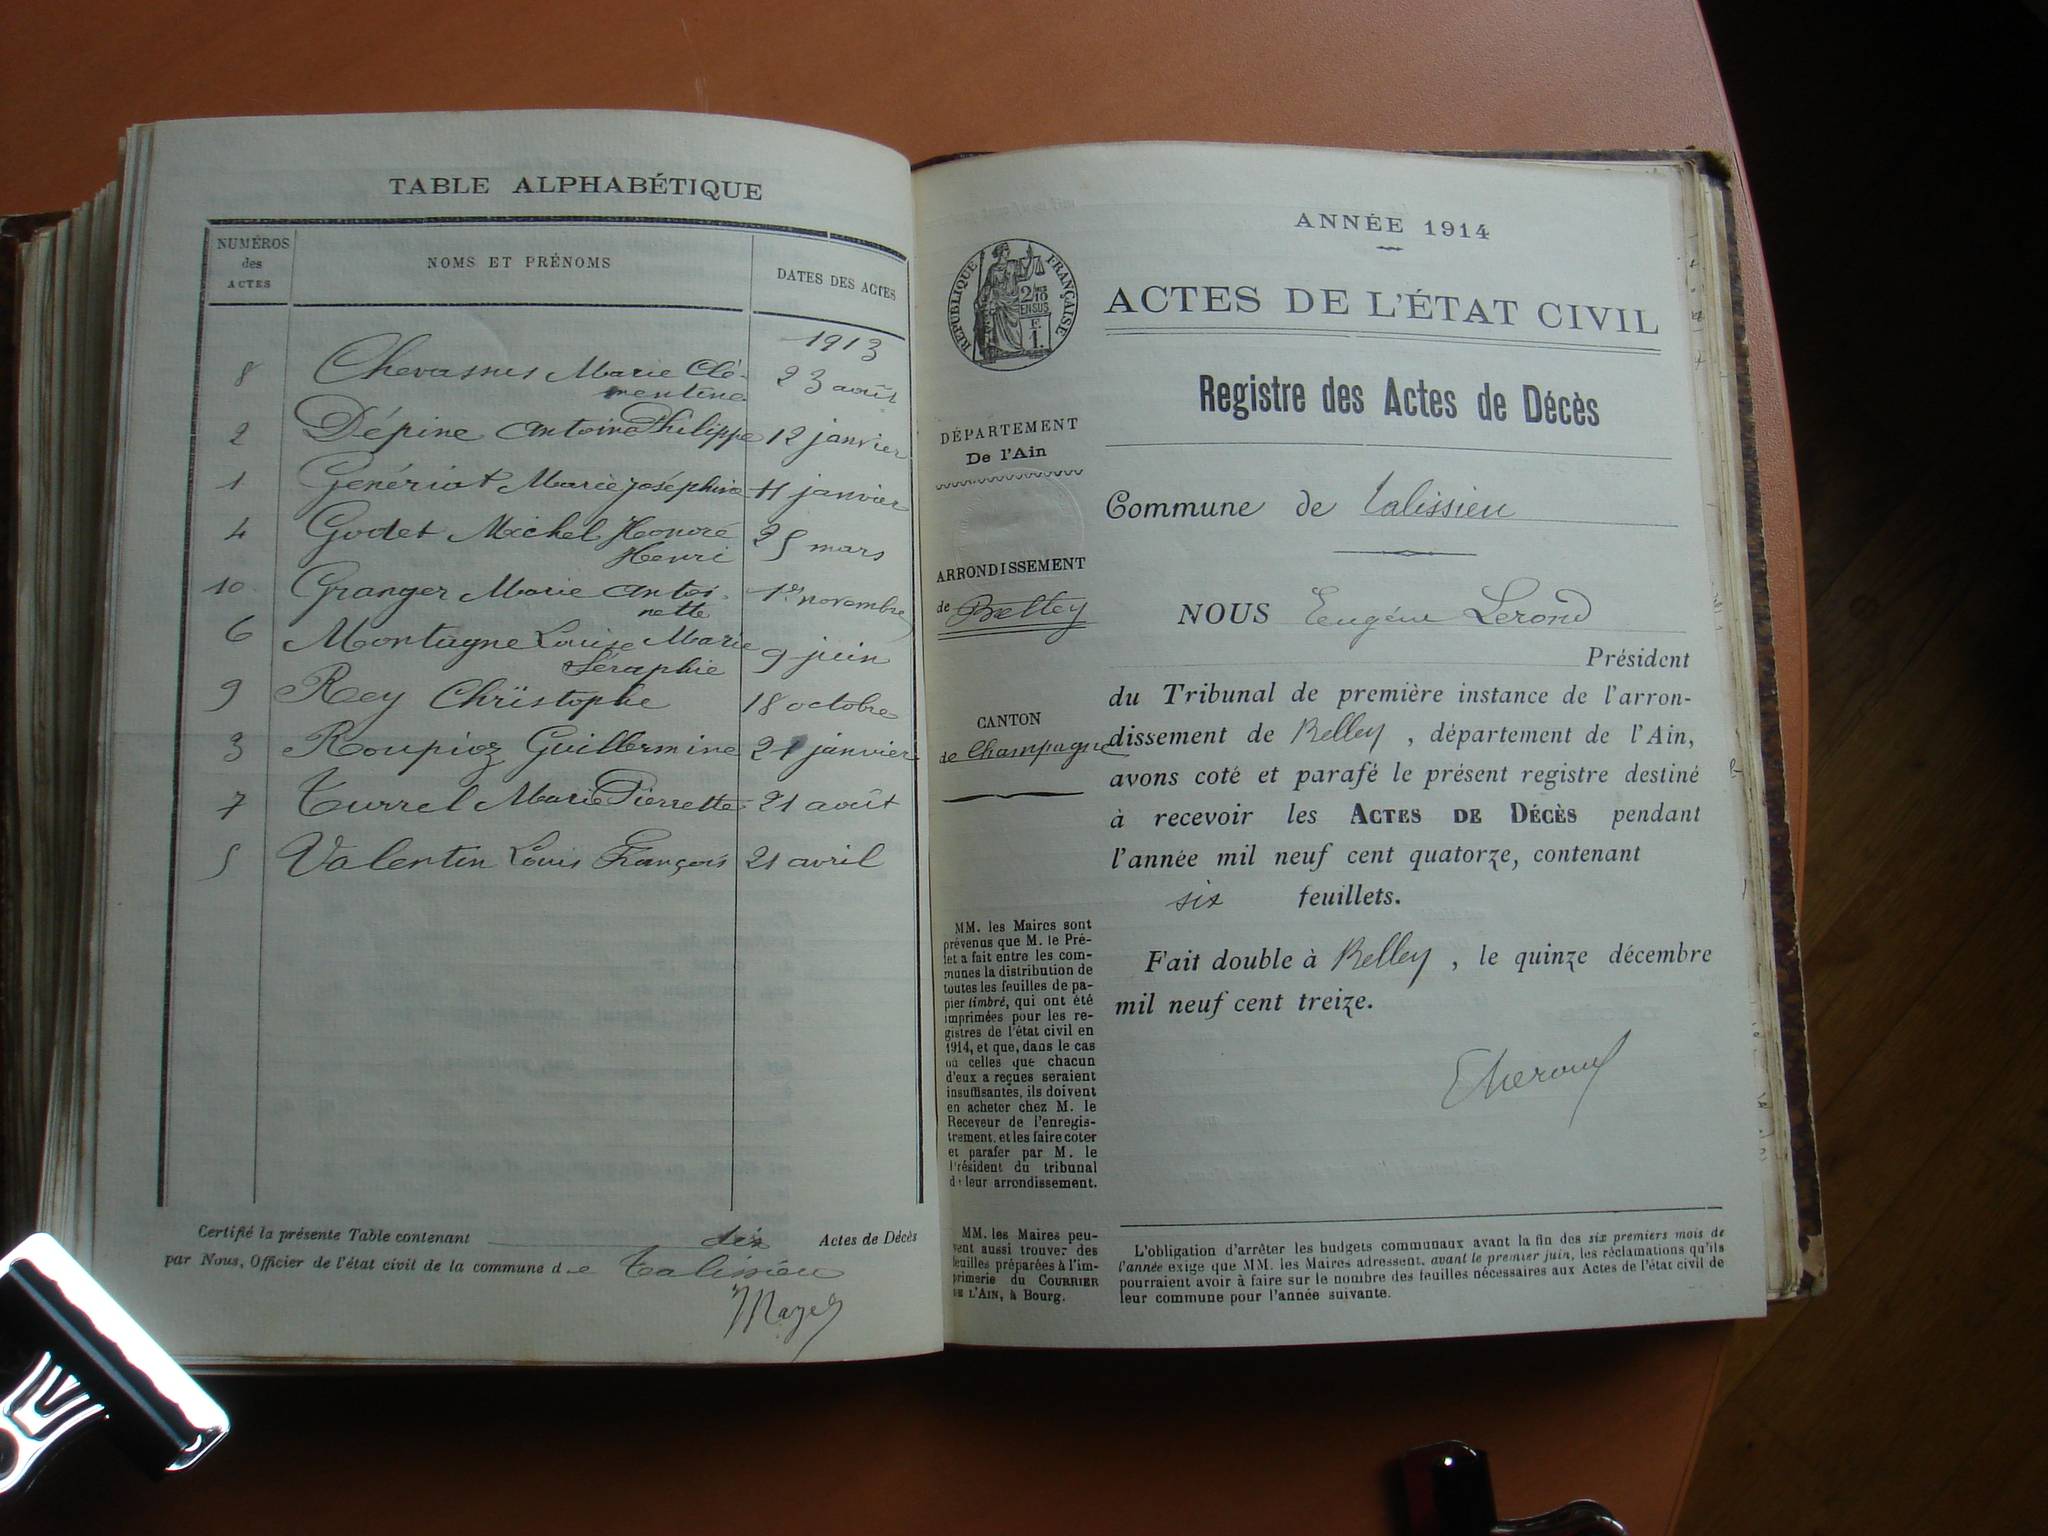 TABLE ALPHABÉTIQUE
NUMÉROS des ACTES
NOMS ET PRÉNOMS
DATES DES ACTES
1913
8 Chevassus Marie Clé- 23 août
mentine
2 Dépine Antoine Philippe 12 janvier
1 Genériat Marie Joséphine 11 janvier
4 Godet Michel Honoré 25 mars
Henri
10 Granger Marie Antoi- 1er novembre
nette
6 Montagne Louise Marie 9 juin
Séraphie
9 Rey Christophe 18 octobre
3 Roupioz Guillermine 21 janvier
7 Turrel Marie Pierrette 21 août
5 Valentin Louis François 21 avril
Certifié la présente Table contenant dix Actes de Décès
par Nous, Officier de l'état civil de la commune de Talissieu
ANNÉE 1914
RÉPUBLIQUE FRANÇAISE
2/10
EN SUS
F.
1.
ACTES DE L'ÉTAT CIVIL
Registre des Actes de Décès
DÉPARTEMENT
De l'Ain
ARRONDISSEMENT
de Belley
CANTON
de Champagne
MM. les Maires sont
prévenus que M. le Pré-
fet a fait entre les com-
munes la distribution de
toutes les feuilles de pa-
pier timbré, qui ont été
imprimées pour les re-
gistres de l'état civil en
1914, et que, dans le cas
où celles que chacun
d'eux a reçues seraient
insuffisantes, ils doivent
en acheter chez M. le
Receveur de l'enregis-
trement, et les faire coter
et parafer par M. le
Président du tribunal
de leur arrondissement.
MM. les Maires peu-
vent aussi trouver des
feuilles préparées à l'im-
primerie du COURRIER
DE L'AIN, à Bourg.
Commune de Talissieu
NOUS Eugène Lerond
Président
du Tribunal de première instance de l'arron-
dissement de Belley, département de l'Ain,
avons coté et parafé le présent registre destiné
à recevoir les ACTES DE DÉCÈS pendant
l'année mil neuf cent quatorze, contenant
six feuillets.
Fait double à Belley, le quinze décembre
mil neuf cent treize.
L'obligation d'arrêter les budgets communaux avant la fin des six premiers mois de
l'année exige que MM. les Maires adressent, avant le premier juin, les réclamations qu'ils
pourraient avoir à faire sur le nombre des feuilles nécessaires aux Actes de l'état civil de
leur commune pour l'année suivante.